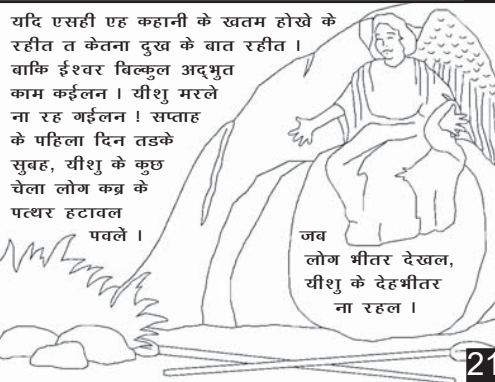 यदि एसही एह कहानी के खतम होखे के
रहीत त केतना दुख के बात रहीत ।
बाकि ईश्वर बिल्कुल अद्भुत
काम कईलन । यीशु मरले
ना रह गईलन ! सप्ताह
के पहिला दिन तडके
सुबह, यीशु के कुछ
चेला लोग कब्र के
पत्थर हटावल
पवलें ।
जब
लोग भीतर देखल,
यीशु के देहभीतर
ना रहल ।
21